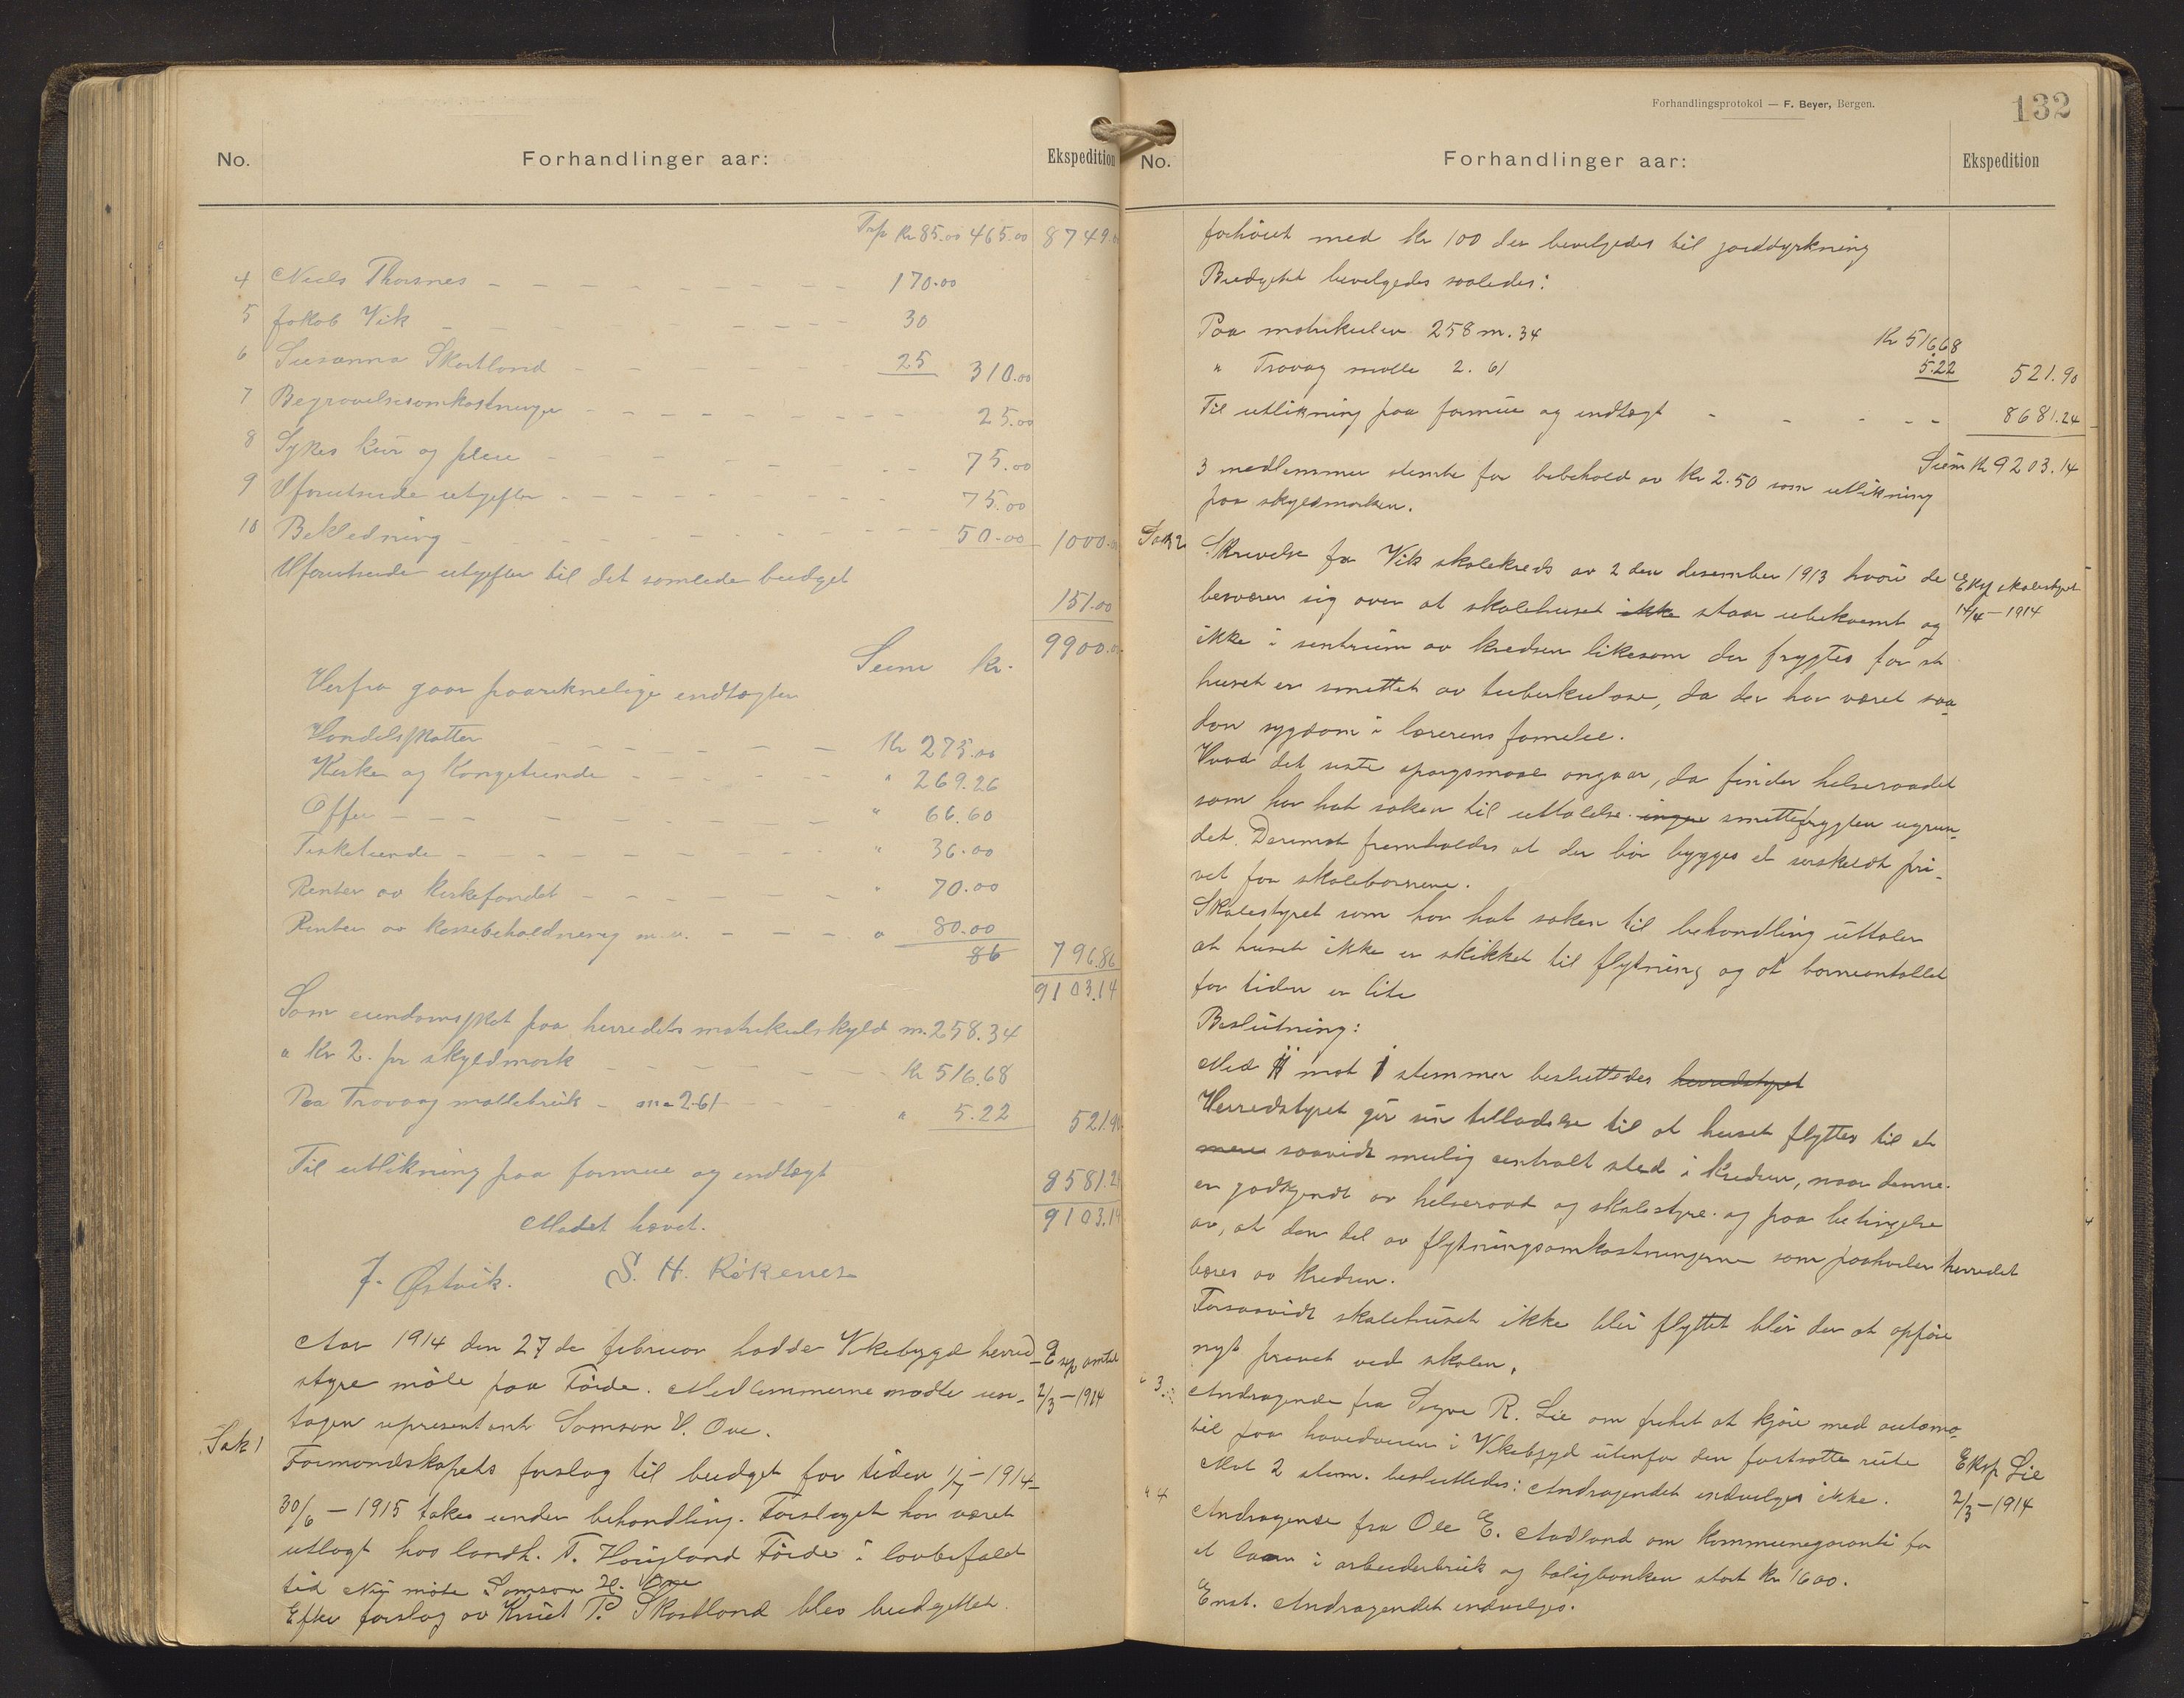 No.
Forhandlinger aar:
Ekspedition
Trsp kr 85.00 465.00 8749.00
4 Niels Thorsnes - - - 170.00
5 Jakob Vik - - - 30
6 Susanna Skartland - - - 25 310.00
7 Begravelsesomkostninger - - - 25.00
8 Sykes kur og pleie - - - 75.00
9 Uforutseede utgifter - - - 75.00
10 Beklædning - - - 50.00 1000.00
Uforutseede utgifter til det samlede budget
151.00
Sum kr. 9900.00
Herfra gaar paareknelige indtægter
Handelsskatter - - - Kr 275.00
Kirke og Kongetiende - - - " 269.26
Offer - - - " 66.60
Fisketiende - - - " 36.00
Renter av kirkefondet - - - " 70.00
Renter av kassebeholdning m.v. - - - " 80.00
86 796.86
9103.14
Som eiendomsskat paa herredets matrikulskyld m. 258.34
a Kr 2. pr skyldmark - - - Kr 516.68
Paa Trovaag møllebruk - m 2.61 - - - " 5.22 521.90
Til utlikning paa formue og indtægt 8581.24
9103.14
Mødet hævet.
J. Østvik. S. H. Røkenes
Aar 1914 den 27de februar hadde Vikebygd herred-
styre møte paa Førde. Medlemmerne mødte und-
tagen representant Samson H. Øvre.
Eksp amtet
2/3-1914
Sak 1
Formandskapets forslag til budget for tiden 1/7-1914-
30/6-1915 takes under behandling. Forslaget har været
utlagt hos landh. T. Haugland Førde i lovbefalet
tid Nu møtte Samson H. Øvre
Efter forslag av Knut P. Skartland blev budgettet
Forhandlingsprotokol — F. Beyer, Bergen.
132
No.
Forhandlinger aar:
Ekspedition
forhøiet med kr 100 der bevilgedes til jorddyrkning
Budgettet bevilgedes saaledes:
Paa matrikulen 258 m. 34 Kr 516.68
" Trovag mølle 2. 61 5.22 521.90
Til utlikning paa formue og indtægt - - - 8681.24
Sum kr 9203.14
3 medlemmer stemte for bebehold av kr 2.50 som utlikning
paa skyldmarken.
Sak 2
Skrivelse fra Vik skolekreds av 2den desember 1913 hvori de
besværer sig over at skolehuset ikke staar ubekvemt og
ikke i sentrum av kredsen likesom der frygtes for at
huset er smittet av tuberkulose, da der har været saa-
dan sygdom i lærerens familie.
Eksp skolestyret
14/4-1914
Hvad det siste spørgsmaal angaar, da finder helseraadet
som har hat saken til uttalelse ingen smittefrygten ugrun-
det. Derimot fremholdes at der bør bygges et særskildt pri-
vet for skolebørnene.
Skolestyret som har hat saken til behandling uttaler
at huset ikke er skikket til flytning og at børneantallet
for tiden er lite
Beslutning:
Med 11 mot 1 stemmer besluttedes herredstyret
Herredstyret gir sin tilladelse til at huset flyttes til et
mere saavidt mulig centralt sted i kredsen, naar denne
er godkjendt av helseraad og skolestyre og paa betingelse
av, at den del av flytningsomkostningerne som paahviler herredet
bæres av kredsen.
Forsaavidt skolehuset ikke blir flyttet blir der at opføre
nyt privet ved skolen.
" 3
Andragende fra Sigve R. Lie om frihet at kjøre med automo-
bil paa hovedveien i Vikebygd utenfor den fortsatte rute
Mot 2 stem. besluttedes: Andragendet indvilges ikke.
Eksp Lie
2/3-1914
" 4
Andragende fra Ole E. Aadland om kommunegaranti for
et laan i arbeiderbruk og boligbanken stort kr 1600.
Enst. Andragendet indvilges.